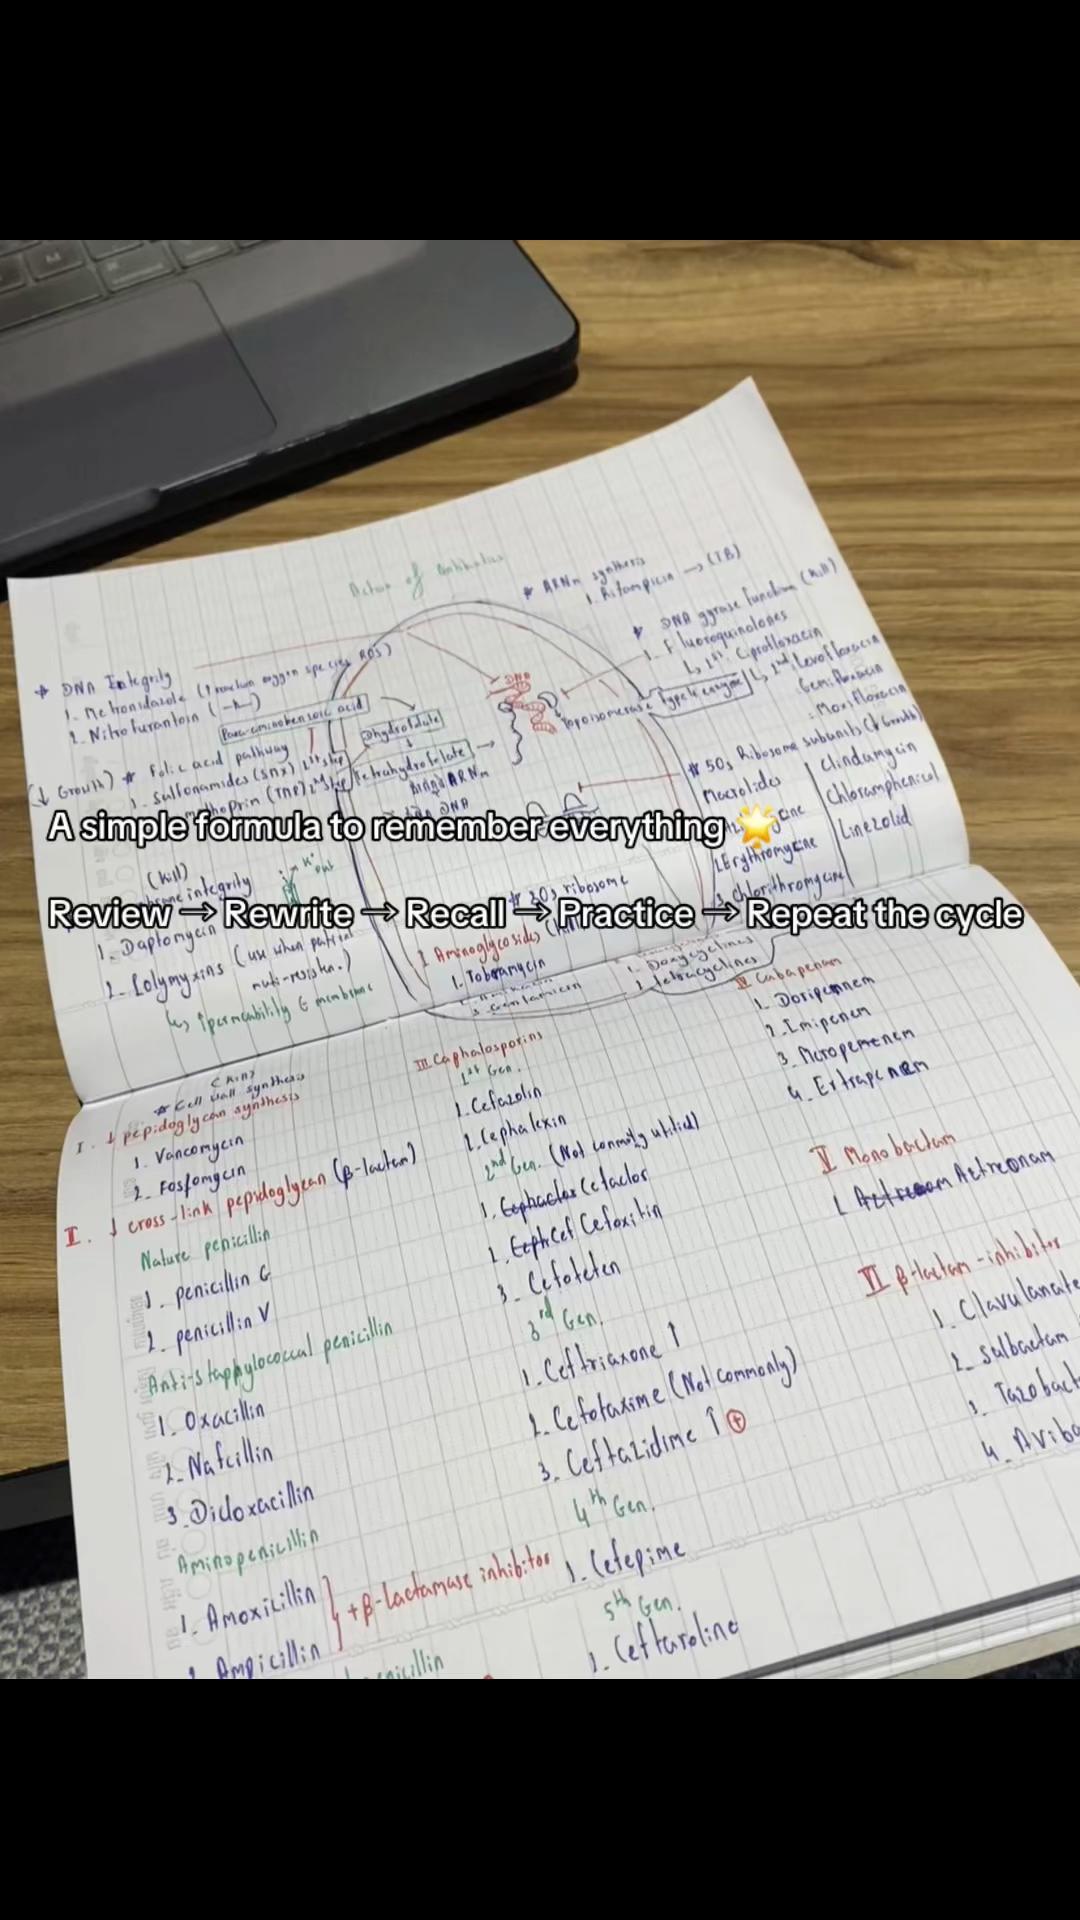 Action of antibiotics
* ARNm synthesis
1. Rifampicin → (TB)
* DNA gyrase function (kill)
1. Fluoroquinolones
↳ 1st: Ciprofloxacin
↳ 2nd: Levofloxacin
: Gemifloxacin
: Moxifloxacin
Topoisomerase type 4 enzyme
DNA
* DNA Integrity
1. Metronidazole (↑ reaction oxygen species ROS)
2. Nitrofurantoin
Para-aminobenzoic acid
Dhydrofolate
Tetrahydrofolate →
(↓ Growth) * Folic acid pathway
1. Sulfonamides (SMX) 1st step
(TMP) 2nd step
ARNm
DNA
* 50s Ribosome subunits (↓ Growth)
Macrolides
Erythromycine
3. chlorithromycine
Clindamycin
Chloramphenicol
Linezolid
A simple formula to remember everything 🌟
Review → Rewrite → Recall → Practice → Repeat the cycle
(kill)
integrity
K+ out
1. Daptomycin
2. Polymyxins (use when partial
muti-resisten.)
↳ ↑permeability ∈ membrane
30s ribosome
1. Aminoglycosides
1. Tobramycin
3. Gentamicin
1. Doxycyclines
2. tetracyclines
(kill)
* Cell wall synthesis
I. ↓ pepidoglycan synthesis
1. Vancomycin
2. Fosfomycin
II. ↓ cross-link pepidoglycan (β-lactam)
Nature penicillin
1. penicillin G
2. penicillin V
Anti-staphylococcal penicillin
1. Oxacillin
2. Nafcillin
3. Dicloxacillin
Aminopenicillin
1. Amoxicillin
2. Ampicillin
+ β-lactamase inhibitor
III. Caphalosporins
1st Gen.
1. Cefazolin
2. Cephalexin
2nd Gen. (Not commonly utilied)
1. Cephaclor Cefaclor
2. Ceph Cef Cefoxitin
3. Cefoteten
3rd Gen.
1. Ceftriaxone ↑
2. Cefotaxime (Not commonly)
3. Ceftazidime ↑ ⊕
4th Gen.
1. Cefepime
5th Gen.
1. Ceftaroline
IV Cabapenam
1. Doripennem
2. Imipenem
3. Meropenem
4. Ertrapenem
V Monobactam
1. Aztreonam
VI β-lactam-inhibitor
1. Clavulanate
2. Sulbactam
3. Tazobact
4. Aviba